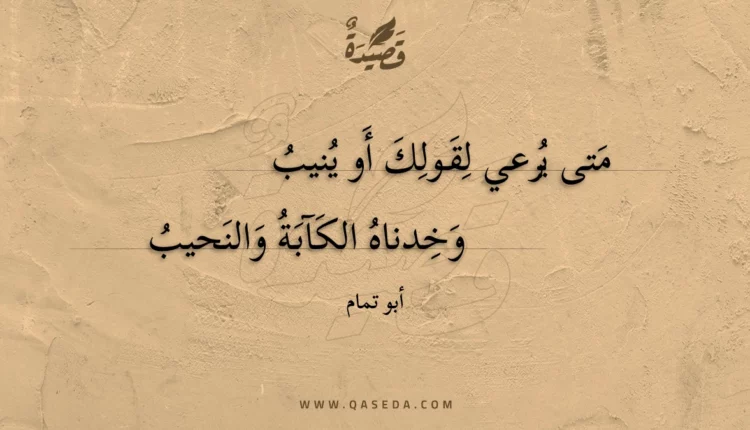 قَصِيدَةٌ
مَتى يُرعي لِقَولِكَ أَو يُنيبُ
وَخِدناهُ الكَآبَةُ وَالنَحيبُ
أبو تمام
WWW.QASEDA.COM